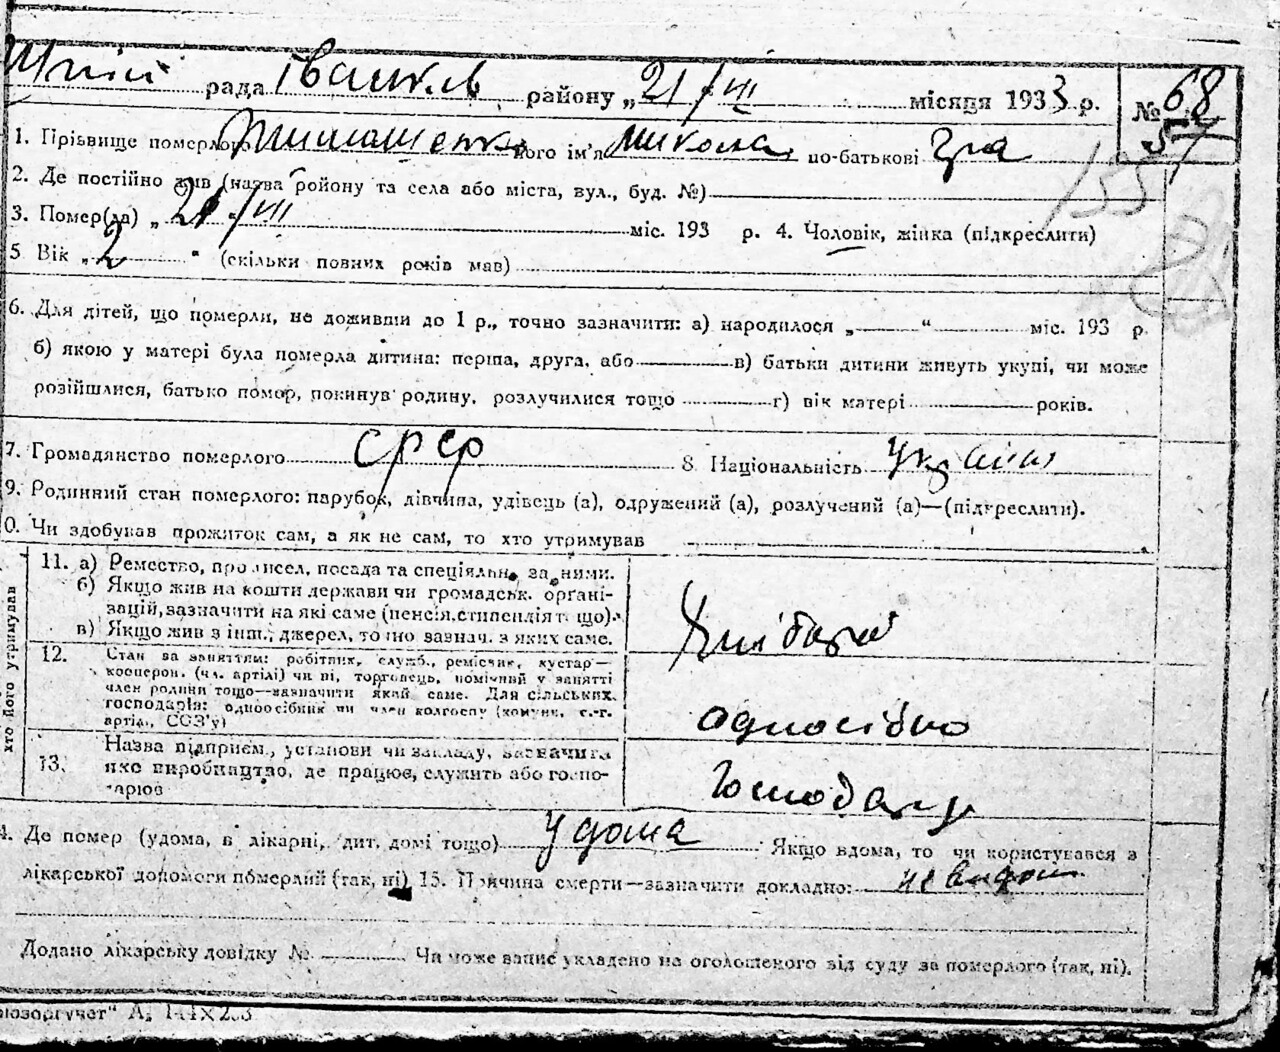 рада Іванків району „21/VII місяця 1933 р. № 68
57
1. Прізвище померлого його ім'я Микола по-батькові
155
2. Де постійно жив (назва ройону та села або міста, вул., буд. №)
3. Помер(ла) „21/VII міс. 193 р. 4. Чоловік, жінка (підкреслити)
5 Вік „2 “ (скільки повних років мав)
6. Для дітей, що померли, не доживши до 1 р., точно зазначити: а) народилося „ “ міс. 193 р.
б) якою у матері була померла дитина: перша, друга, або в) батьки дитини живуть укупі, чи може
розійшлися, батько помер, покинув родину, розлучилися тощо г) вік матері років.
7. Громадянство померлого СРСР 8. Національність
9. Родинний стан померлого: парубок, дівчина, удівець (а), одружений (а), розлучений (а)—(підкреслити).
0. Чи здобував прожиток сам, а як не сам, то хто утримував
хто його утримував
11. а) Ремество, промисел, посада та спеціяльн. за ними.
б) Якщо жив на кошти держави чи громадськ. органі-
зацій, зазначити на які саме (пенсія, стипендія т. що).
в) Якщо жив з інш. джерел, то що зазнач. з яких саме.
Хлібороб
12. Стан за заняттям: робітник, служб., ремісник, кустар—
кооперов. (чл. артілі) чи ні, торговець, помічний у занятті
член родини тощо—зазначити який саме. Для сільських
господарів: одноосібник чи член колгоспу (комуни, с.-г.
артіл., СОЗ'у)
односібно
13. Назва підприєм., установи чи закладу, зазначити
яке виробництво, де працює, служить або госпо-
дарює
Господару
4. Де помер (удома, в лікарні, дит. домі тощо) удома Якщо вдома, то чи користувався з
лікарської допомоги померлий (так, ні) 15. Причина смерти—зазначити докладно:
Додано лікарську довідку № Чи може запис укладено на оголошеного від суду за померлого (так, ні).